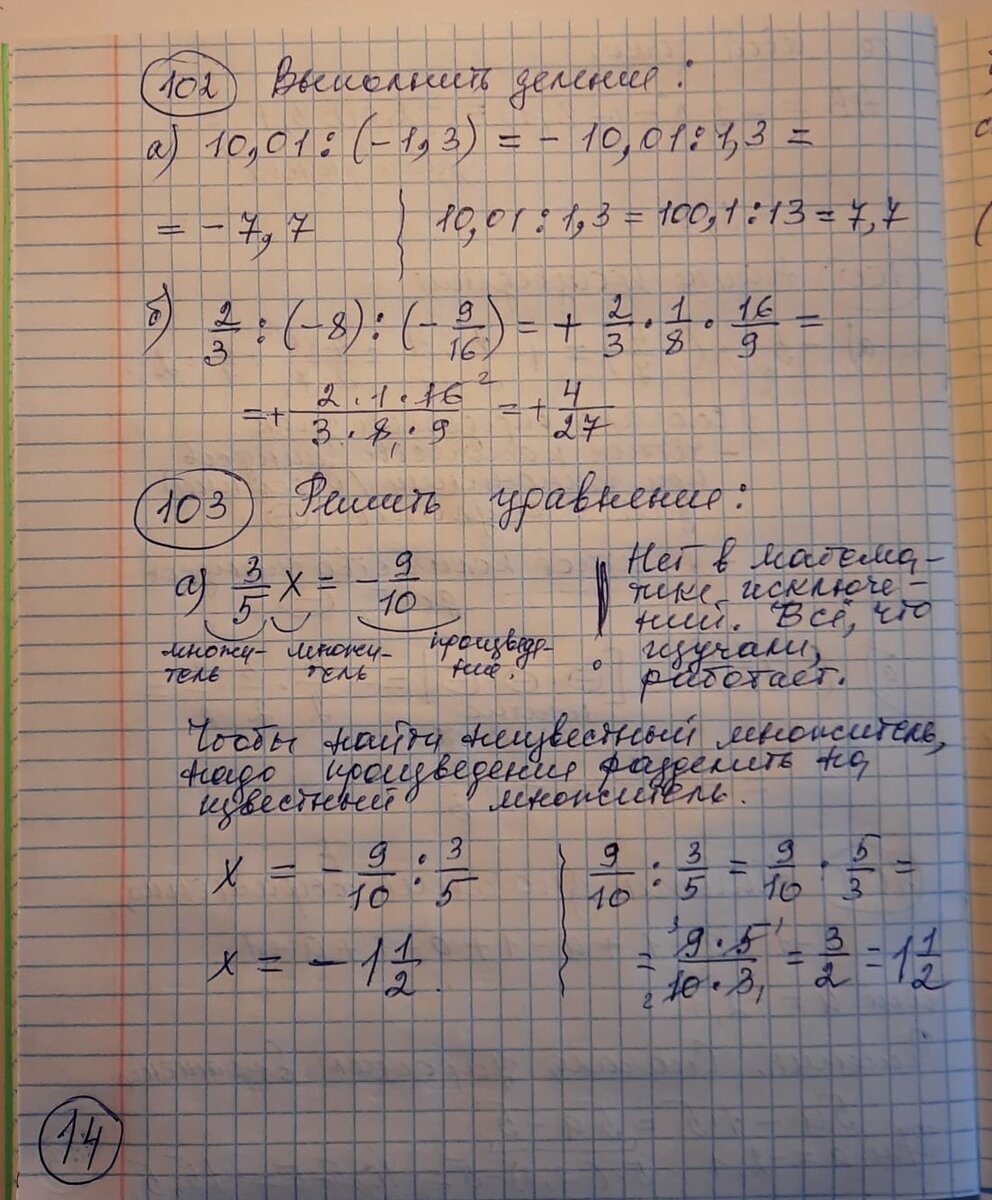 102 Выполнить деление:
а) 10,01 : (-1,3) = - 10,01 : 1,3 =
= - 7,7 } 10,01 : 1,3 = 100,1 : 13 = 7,7
б) 2/3 : (-8) : (- 9/16) = + 2/3 · 1/8 · 16/9 =
= + (2 · 1 · 16 2)/(3 · 8 1 · 9) = + 4/27
103 Решить уравнение:
а) 3/5 x = - 9/10
множи-
тель
множи-
тель
произведе-
ние.
Нет в матема-
тике исключе-
ний. Всё, что
изучали,
работает.
Чтобы найти неизвестный множитель,
надо произведение разделить на
известный множитель.
x = - 9/10 : 3/5
x = - 1 1/2.
9/10 : 3/5 = 9/10 · 5/3 =
= (3 9 · 5 1)/(2 10 · 3 1) = 3/2 = 1 1/2
14